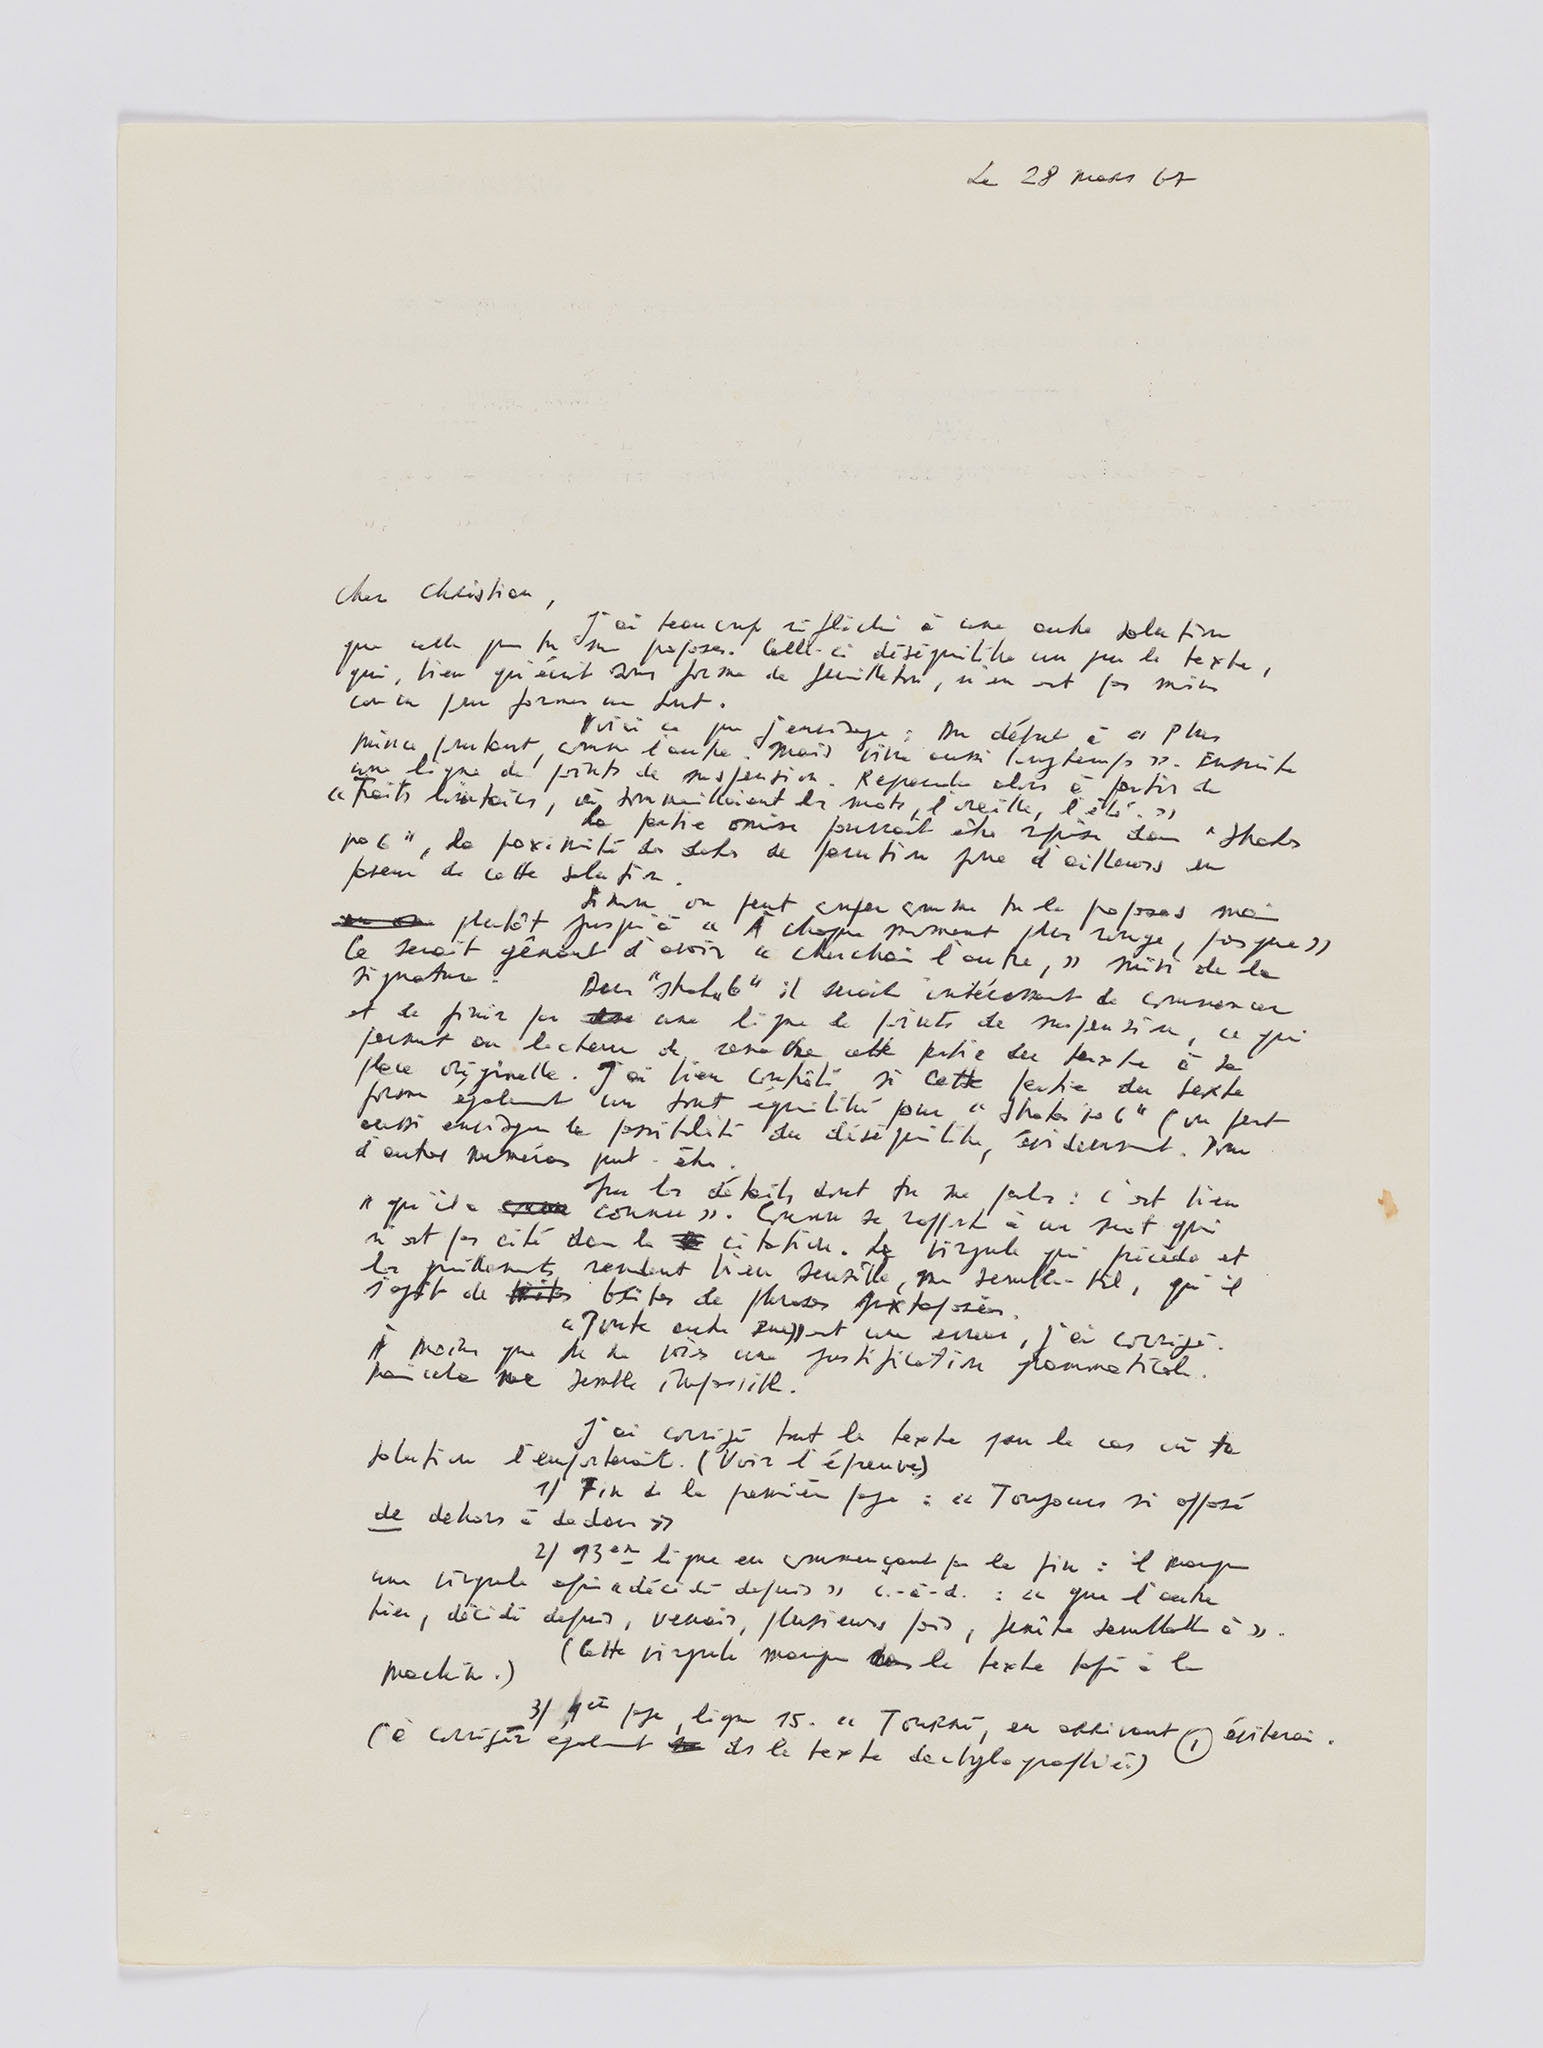 Le 28 mars 67
Cher Christian,
J'ai beaucoup réfléchi à une autre solution
que celle que tu me proposes. Celle-ci déséquilibre un peu le texte,
qui, bien qu'écrit sous forme de feuilleton, n'en est pas moins
conçu pour former un tout.
Voici ce que j'envisage : Du début à « Plus
mince partout, comme l'autre. Mais vivre aussi longtemps ». Ensuite
une ligne de points de suspension. Reprendre alors à partir de
« Traits lointains, où sommeillaient les mots, l'oreille, l'été. »
La partie omise pourrait être reprise dans "Strates
no 6", la proximité des dates de parution joue d'ailleurs en
faveur de cette solution.
Sinon on peut couper comme tu le proposes mais
plutôt jusqu'à « À chaque moment plus rouge, jusque »
Ce serait gênant d'avoir « cherchais l'autre, » suivi de la
signature.
Dans "Strates 6" il serait intéressant de commencer
et de finir par une ligne de points de suspension, ce qui
permet au lecteur de remettre cette partie du texte à sa
place originelle. J'ai bien contrôlé si cette partie du texte
forme également un tout équilibré pour « Strates no 6 " (on peut
aussi envisager la possibilité du déséquilibre, évidemment. Pour
d'autres numéros peut-être.
Pour les détails dont tu me parles : c'est bien
« qu'il a connu ». Connu se rapporte à un mot qui
n'est pas cité dans la citation. La virgule qui précède et
les guillemets rendent bien sensible, me semble-t-il, qu'il
s'agit de bribes de phrases juxtaposées.
« Toute autre » est une erreur, j'ai corrigé.
À moins que tu ne voies une justification grammaticale.
Mais cela me semble impossible.
J'ai corrigé tout le texte pour le cas où ta
solution l'emporterait. (Voir l'épreuve)
1/ Fin de la première page : « Toujours si opposé
de dehors à dedans »
2/ 13em ligne en commençant par la fin : il manque
une virgule après « décidé depuis » c.-à-d. : « que l'autre
bien, décidé depuis, venais, plusieurs fois, fenêtre semblable à ».
(Cette virgule manque dans le texte tapé à la
machine.)
3/ page, ligne 15. « Tourné, en arrivant , éviterai.
(à corriger également ds le texte dactylographié)